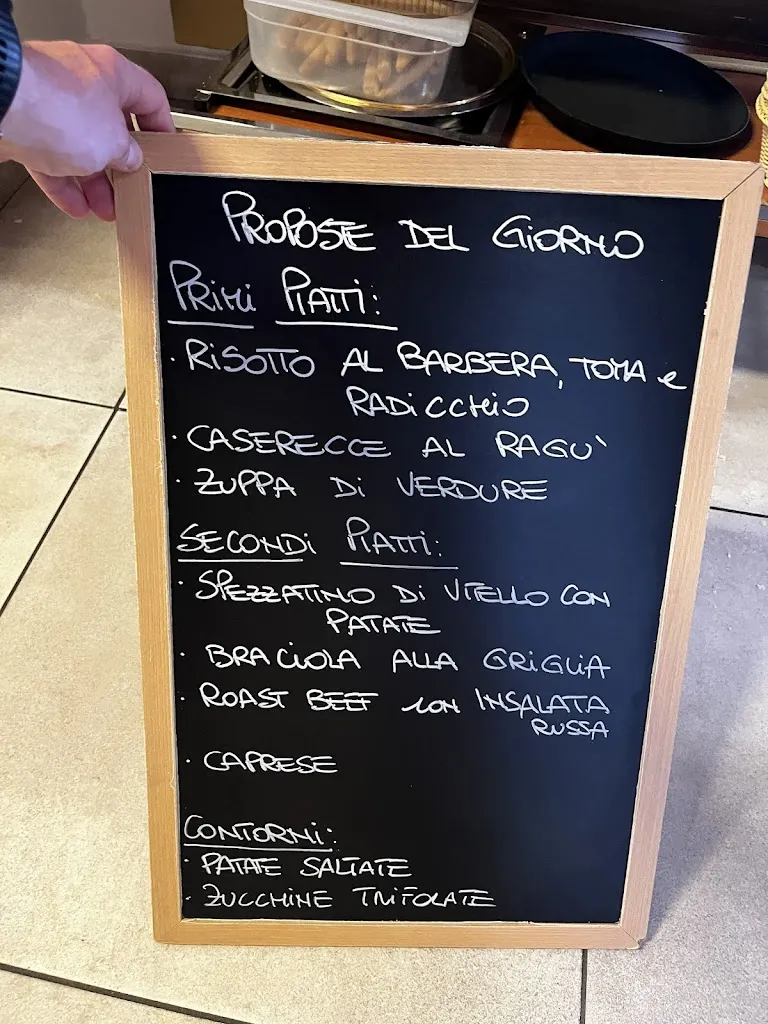 PROPOSTE DEL GIORNO
PRIMI PIATTI:
· RISOTTO AL BARBERA, TOMA e
RADICCHIO
· CASERECCE AL RAGU'
· ZUPPA DI VERDURE
SECONDI PIATTI:
· SPEZZATINO DI VITELLO CON
PATATE
· BRACIOLA ALLA GRIGLIA
· ROAST BEEF con INSALATA
RUSSA
· CAPRESE
CONTORNI:
· PATATE SALTATE
· ZUCCHINE TRIFOLATE